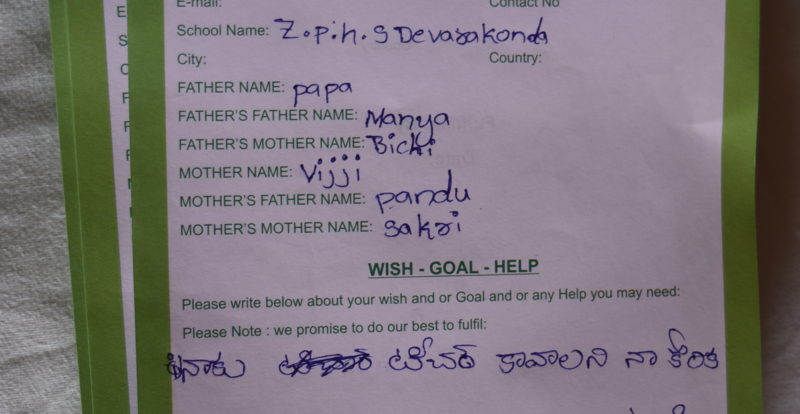 E-mail: Contact No
School Name: Z.P.H.S Devarakonda
City: Country:
FATHER NAME: papa
FATHER'S FATHER NAME: Manya
FATHER'S MOTHER NAME: Bichi
MOTHER NAME: Vijji
MOTHER'S FATHER NAME: pandu
MOTHER'S MOTHER NAME: sakri
WISH - GOAL - HELP
Please write below about your wish and or Goal and or any Help you may need:
Please Note : we promise to do our best to fulfil:
నాకు టీచర్ కావాలని నా కోరిక